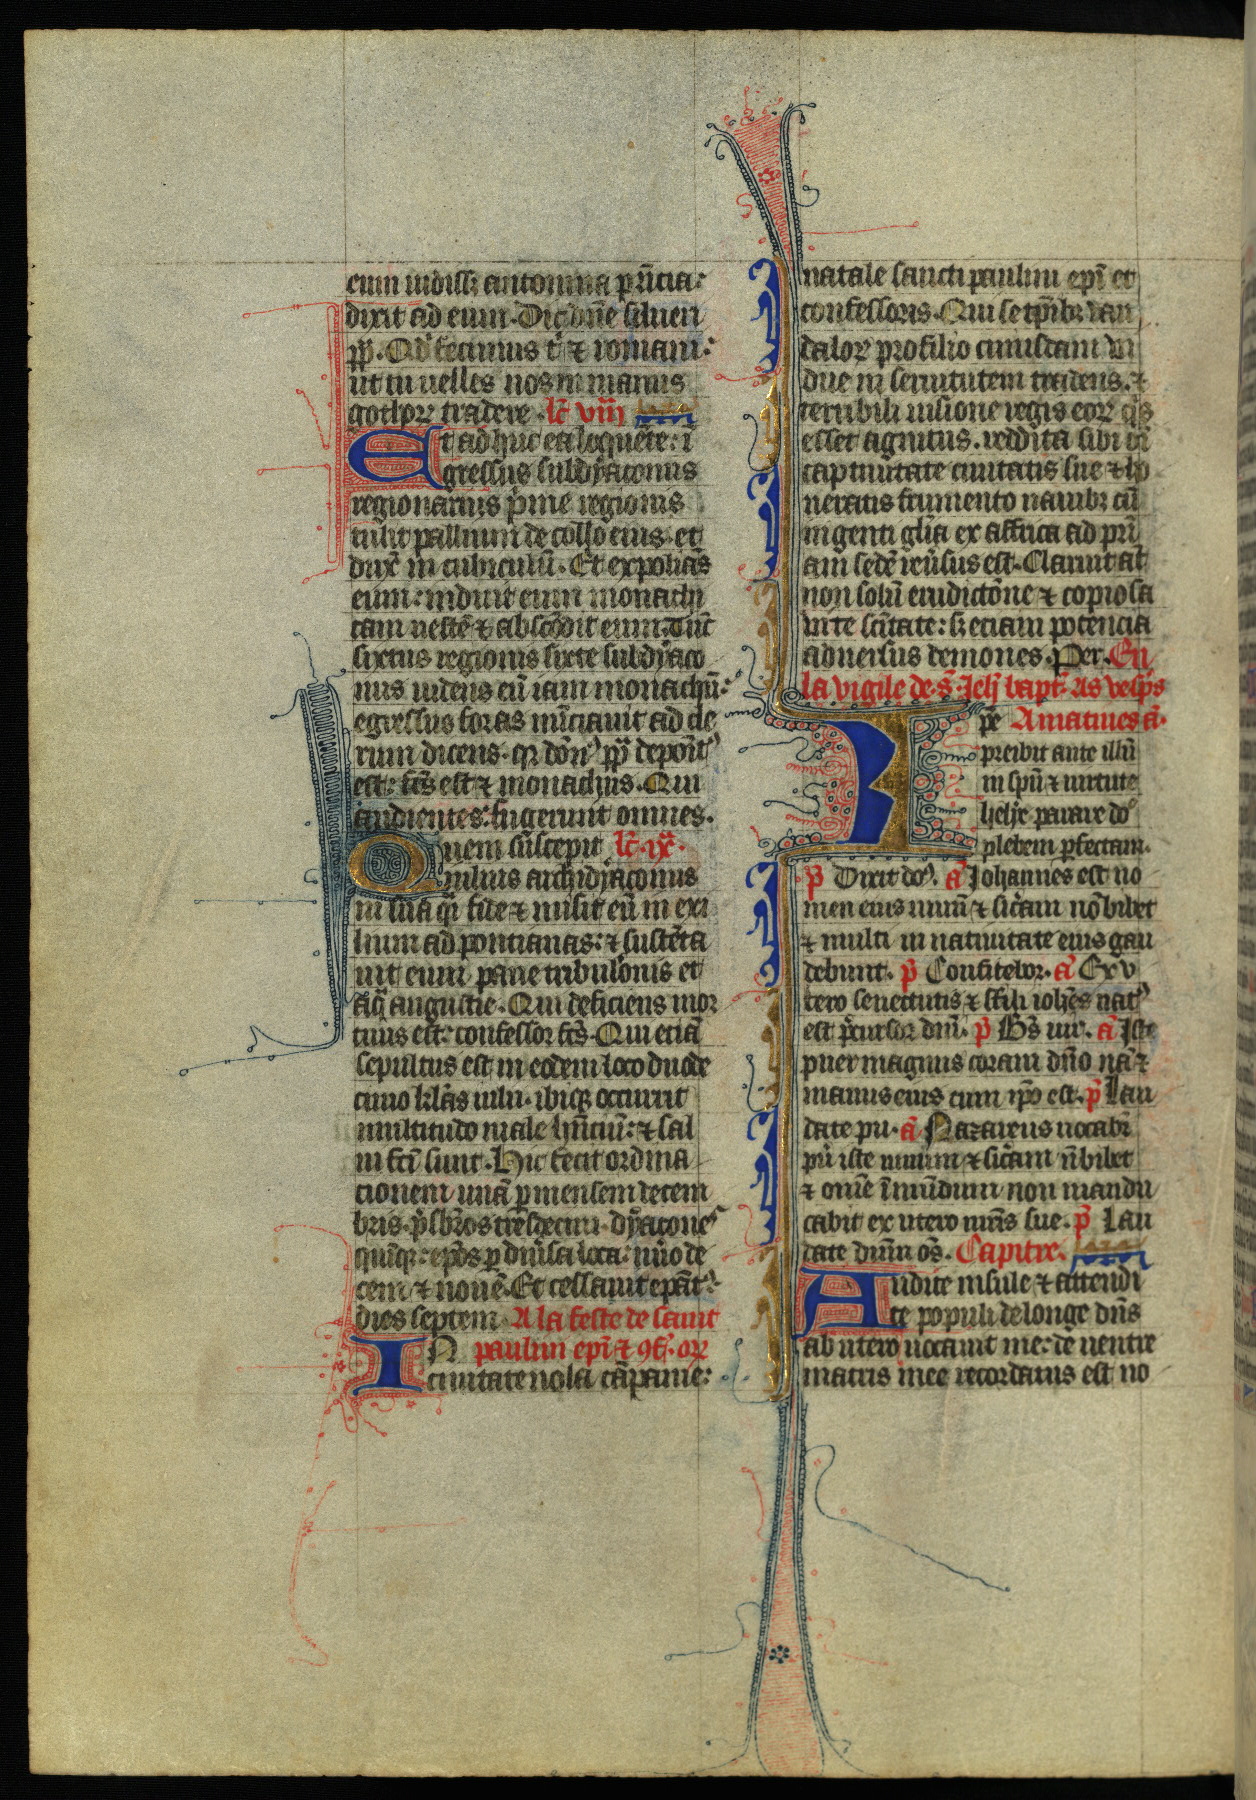 eum uidisset antonina p̄ricia:
dixit ad eum. Dic dn̄e silueri
pp̄. Qd̓ fecimus t̓ ⁊ romanis:
ut tu uelles nos in manus
gothoꝝ tradere. lc̄ viij
Et adhuc ea loquēte: ī
gressus subdyaconus
regionarius p̓me regionis
tulit pallium de collo eius. et
dux̄ in cubiculū. Et expoliās
eum: induit eum monachi
cam uestē ⁊ abscōdit eum. Tūc
sixtus regionis sixte subdyaco
nus uidens eū iam monachū:
egressus foras nūciauit ad cle
rum dicens. qꝛ dōn̓ pp̄ deposit̓
est: fc̄s est ⁊ monachus. Qui
audientes: fugerunt omnes.
Quem suscepit lc̄. ix.
uilius archidyaconus
in sua q̓i fide ⁊ misit eū in exi
lium ad pontianas: ⁊ sustēta
uit eum pane tribulōnis et
aq̄ angustie. Qui deficiens mor
tuus est: confessor fc̄s. Qui etiā
sepultus est in eodem loco duode
cimo kl̄as iulii. ibiqꝫ occurrit
multitudo male hn̄cium: ⁊ sal
ui fc̄i sunt. Hic fecit ordina
tionem unā p mensem decem
bris. p̄sbr̄os tresdecim. dyacones
quinqꝫ: ep̄os p diu̓sa loca: nūo de
cem ⁊ nouē. Et cessauit ep̄at̓:
dies septem. A la feste de saint
IN paulin ep̄i ⁊ ꝯf̄. or̄
ciuitate nola cāpanie:
natale sancti paulini ep̄i et
confessoris. Qui se tp̄ibꝫ uan
daloꝝ pro filio cuiusdam ui
due in seruitutem tradens. ⁊
terribili uisione regis eoꝝ q̓s
esset agnitus. reddita sibi oī
captiuitate ciuitatis sue ⁊ ho
neratis frumento nauibꝫ cū
ingenti gl̄ia ex affrica ad pri
am sedē reu̓sus est. Claruit aūt
non solū eruditōne ⁊ copiosa
uite sc̄itate: sꝫ etiam potencia
aduersus demones. Per. En
la vigile de. s̄. Jeh̄ bapt̄. As vesp̄s
p̄e A matines a̓.
Ipreibit ante illū
in sp̄u ⁊ uirtute
helye parare do̓
plebem p̄fectam.
p̄ Dixit do̓. a̓ Johannes est no
men eius uinū ⁊ sicerā nō bibet
⁊ multi in natiuitate eius gau
debunt. p̄ Confitebor. a̓ Ex v
tero senectutis ⁊ st̓ili ioh̄es nat̓
est p̄cursor dn̄i. p̄ Bt̄s uir. a̓ Iste
puer magnus coram dn̄o nā ⁊
manus eius cum ip̄o est. p̄ Lau
date pu. a̓ Nazareus uocabr̄
pu̓ iste uinum ⁊ sic̓am n̄ bibet
⁊ omē īmūdum non mandu
cabit ex utero mr̄is sue. p̄ Lau
date dn̄m os̄. Capitre.
Audite insule ⁊ attendi
te populi de longe dn̄s
ab utero uocauit me: de uentre
matris mee recordatus est no